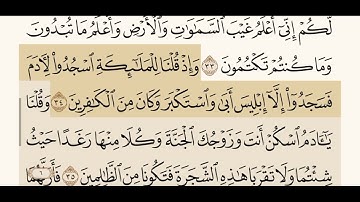 لَّكُمْ إِنِّىٓ أَعْلَمُ غَيْبَ ٱلسَّمَٰوَٰتِ وَٱلْأَرْضِ وَأَعْلَمُ مَا تُبْدُونَ
وَمَا كُنتُمْ تَكْتُمُونَ ٣٣ وَإِذْ قُلْنَا لِلْمَلَٰٓئِكَةِ ٱسْجُدُوا۟ لِءَادَمَ
فَسَجَدُوٓا۟ إِلَّآ إِبْلِيسَ أَبَىٰ وَٱسْتَكْبَرَ وَكَانَ مِنَ ٱلْكَٰفِرِينَ ٣٤ وَقُلْنَا
يَٰٓـَٔادَمُ ٱسْكُنْ أَنتَ وَزَوْجُكَ ٱلْجَنَّةَ وَكُلَا مِنْهَا رَغَدًا حَيْثُ
شِئْتُمَا وَلَا تَقْرَبَا هَٰذِهِ ٱلشَّجَرَةَ فَتَكُونَا مِنَ ٱلظَّٰلِمِينَ ٣٥ فَأَزَلَّهُمَا